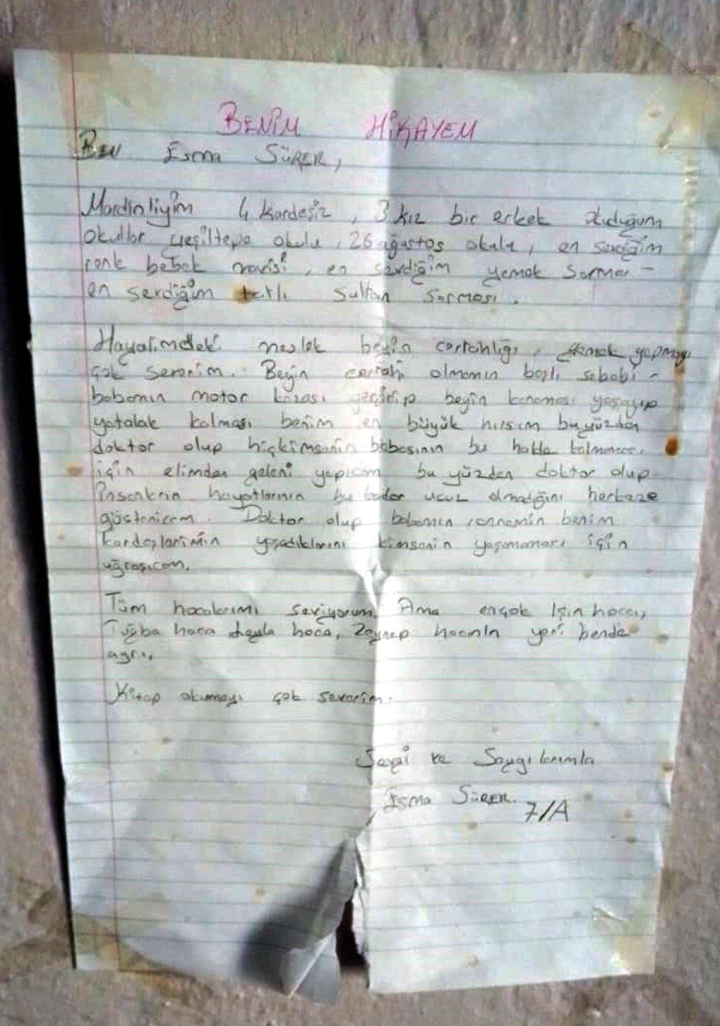 BENİM HİKAYEM
BEN Esma SÜRER,
Mardinliyim 4 kardeşiz, 3 kız bir erkek okuduğum
okullar yeşiltepe okulu, 26 ağustos okulu, en sevdiğim
renk bebek mavisi, en sevdiğim yemek sarma -
en sevdiğim tatlı Sultan sarması.
Hayalimdeki meslek beyin cerrahlığı, yapmayı
çok severim. Beyin cerrahi olmamın başlı sebebi -
babamın motor kazası geçirip beyin kanaması yaşayıp
yatalak kalması benim en büyük hırsım bu yüzden
doktor olup hiçkimsenin babasının bu halde kalmaması
için elimden geleni yapıcam bu yüzden doktor olup
insanların hayatlarının bu kadar ucuz olmadığını herkeze
göstericem. Doktor olup babamın, annemin benim
kardeşlerimin yaşadıklarını kimsenin yaşamaması için
uğraşıcam.
Tüm hocalarımı seviyorum. Ama ençok Işın hoca,
Tuğba hoca Leyla hoca, Zeynep hocanın yeri bende
ayrı,
Kitap okumayı çok severim.
Sevgi ve Saygılarımla
Esma SÜRER. 7/A